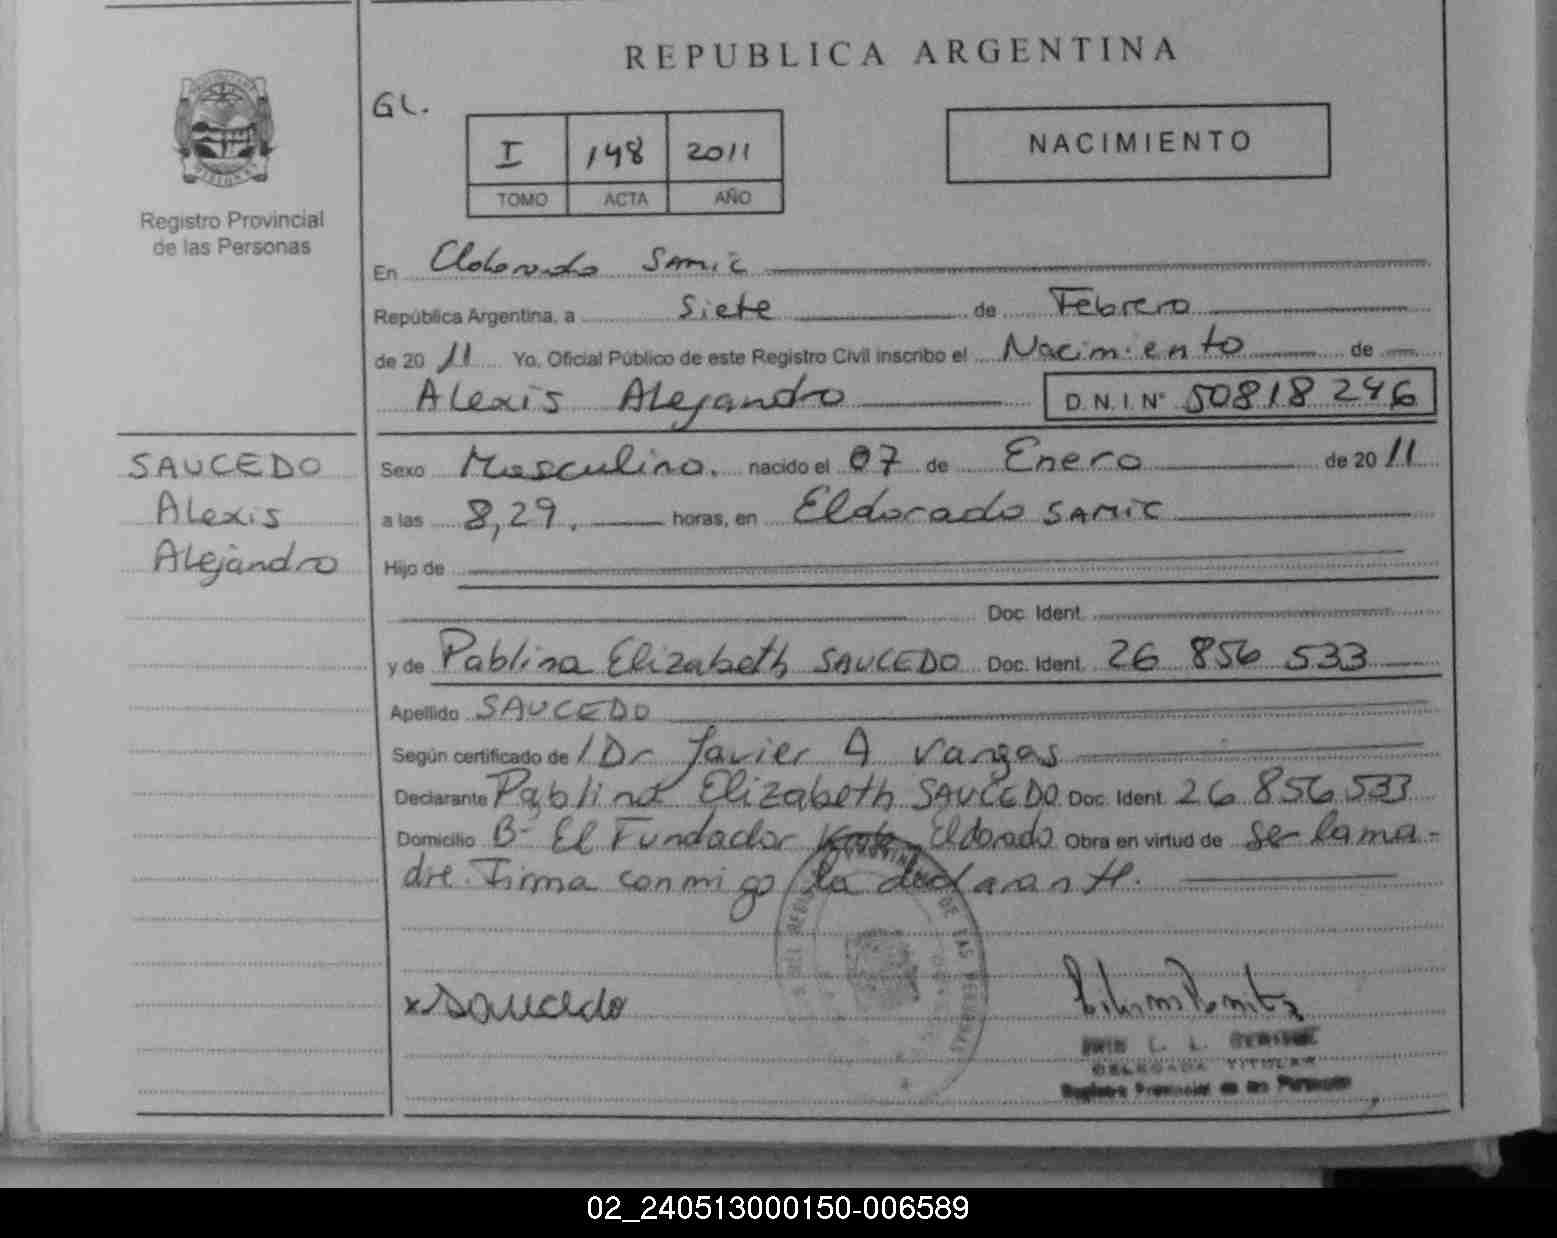 REPUBLICA ARGENTINA
GL.
I 148 2011
TOMO ACTA AÑO
NACIMIENTO
Registro Provincial
de las Personas
En Eldorado SAMIC
República Argentina, a Siete de Febrero
de 2011 Yo, Oficial Público de este Registro Civil inscribo el Nacimiento de
Alexis Alejandro D.N.I. N° 50818246
SAUCEDO
Alexis
Alejandro
Sexo Masculino. nacido el 07 de Enero de 2011
a las 8,29. horas, en Eldorado SAMIC
Hijo de
Doc. Ident.
y de Pablina Elizabeth SAUCEDO Doc. Ident. 26 856 533
Apellido SAUCEDO
Según certificado de Dr Javier A Vargas
Declarante Pablina Elizabeth SAUCEDO Doc. Ident. 26 856 533
Domicilio B- El Fundador Eldorado Obra en virtud de ser la ma-
dre. Firma conmigo la declarante.
x Saucedo
DELEGADA TITULAR
Registro Provincial de las Personas
DE LAS PERSONAS
02_240513000150-006589